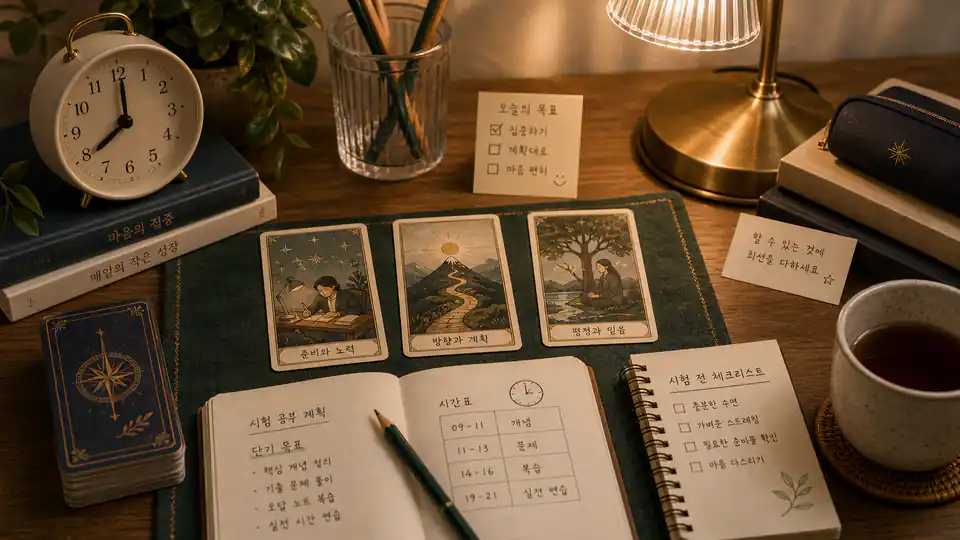 12
1
2
3
4
5
6
7
8
9
10
11
마음의 집중
매일의 작은 성장
오늘의 목표
집중하기
계획대로
마음 편히
할 수 있는 것에
최선을 다하세요
준비와 노력
방향과 계획
평정과 믿음
시험 공부 계획
단기 목표
· 핵심 개념 정리
· 기출 문제 풀이
· 오답 노트 복습
· 실전 시간 연습
시간표
09-11 개념
11-13 문제
14-16 복습
19-21 실전 연습
시험 전 체크리스트
충분한 수면
가벼운 스트레칭
필요한 준비물 확인
마음 다스리기